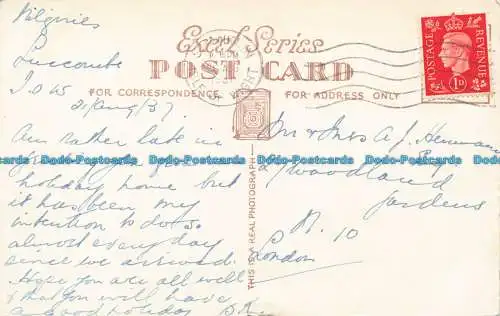 Pilgrims
Luccombe
I O W
2/Aug/37
Excel Series
POST CARD
FOR CORRESPONDENCE
FOR ADDRESS ONLY
POSTAGE
REVENUE
1D
THIS IS A REAL PHOTOGRAPH
Am rather late in
your
holiday home but
it has been my
intention to do so
almost every day
since we arrived.
Hope you are all well
& that you will have
a good holiday
Mr & Mrs A. J.
Woodland
Gardens
N. 10
London
Dodo-Postcards Dodo-Postcards Dodo-Postcards Dodo-Postcards Dodo-Postcards